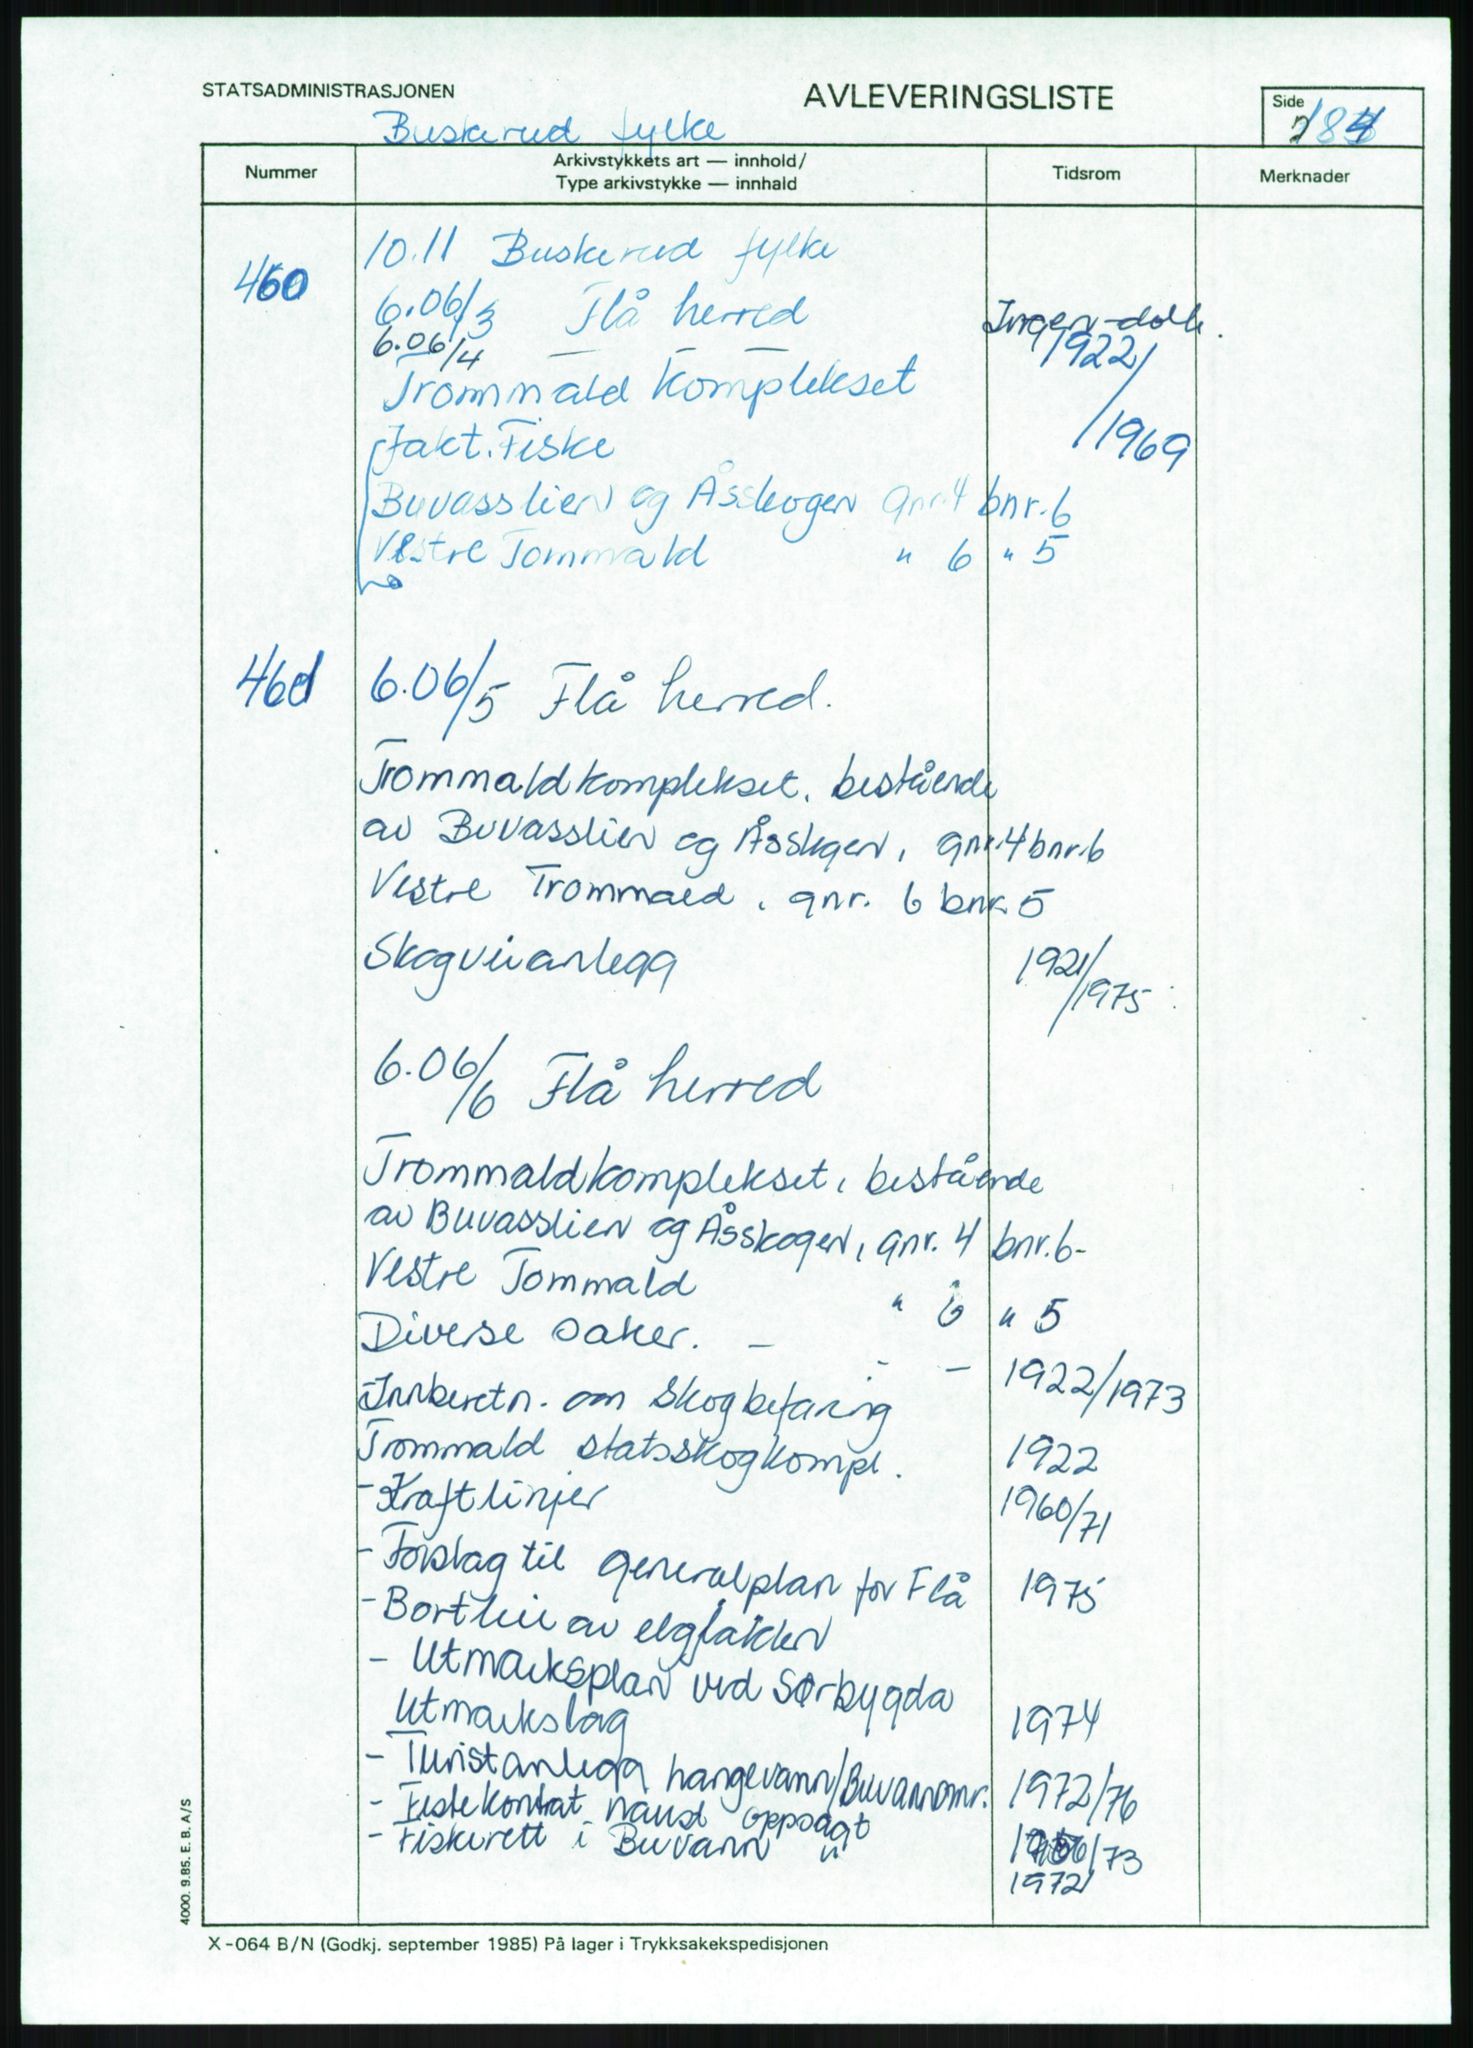 STATSADMINISTRASJONEN
AVLEVERINGSLISTE
Side
Buskerud fylke
Nummer
Arkivstykkets art — innhold/
Type arkivstykke — innhald
Tidsrom
Merknader
10.11 Buskerud fylke
460
6.06/3 Flå herred
Ingen dok.
6.06/4 —
1922/
Trommald Komplekset
/1969
Jakt. Fiske
Buvasslien og Åsskogen gnr. 4 bnr. 6
Vestre Tommald " 6 " 5
6.06/5 Flå herred.
Trommaldkomplekset. bestående
av Buvasslien og Åsskgen, gnr. 4 bnr. 6
Vestre Trommald, gnr. 6 bnr. 5
Skogveianlegg
1921/1975
6.06/6 Flå herred
Trommaldkomplekset, bestående
av Buvasslien og Åsskogen, gnr. 4 bnr. 6-
Vestre Tommald " 6 " 5
Diverse saker. — - —
1922/1973
-Innberetn. om skogbefaring
Trommald statsskogkompl.
1922
- Kraftlinjer
1960/71
- Forslag til generalplan for Flå
1975
- Bortleie av elgjakten
- Utmarksplan ved Sørbygda
Utmarkslag
1974
- Turistanlegg hangevann/Buvannomr.
1972/76
- Festekontrat naust oppsagt
/73
- Fiskerett i Buvann "
1972
4000. 9.85. E. B. A/S
X-064 B/N (Godkj. september 1985) På lager i Trykksakekspedisjonen